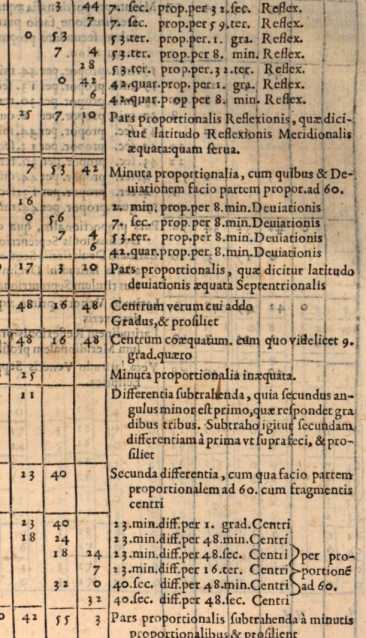 3 44 7. sec. prop.per 32.sec. Reflex.
7 7. sec. prop.per 59.ter. Reflex.
0 53 53.ter. prop.per.1. gra. Reflex.
7 4 53.ter. prop.per 8. min. Reflex.
28 53.ter. prop.per.32.ter. Reflex.
0 42 42.quar.prop.per 1. gra. Reflex.
6 42.quar.prop per 8. min. Reflex.
25 7 10 Pars proportionalis Reflexionis, quæ dici-
tur latitudo Reflexionis Meridionalis
æquata:quam serua.
7 53 42 Minuta proportionalia, cum quibus & De-
uiationem facio partem propor.ad 60.
16 2. min. prop.per 8.min.Deuiationis
0 56 7. sec. prop.per 8.min.Deuiationis
7 4 53.ter. prop.per 8.min.Deuiationis
6 42.quar.prop.per 8.min.Deuiationis
0 17 3 10 Pars proportionalis, quæ dicitur latitudo
deuiationis æquata Septentrionalis
48 16 48 Centrum verum cui addo
Gradus,& prosiliet
48 16 48 Centrum coæquatum. cum quo videlicet 9.
grad.quæro
25 Minuta proportionalia inæquata.
11 Differentia subtrahenda, quia secundus an-
gulus minor est primo,quæ respondet gra
dibus tribus. Subtraho igitur secundam
differentiam à prima vt supra feci, & pro-
siliet
23 40 Secunda differentia, cum qua facio partem
proportionalem ad 60. cum fragmentis
centri
23 40 23.min.diff.per 1. grad.Centri
18 24 23.min.diff.per 48.min.Centri
18 24 23.min.diff.per 48.sec. Centri per pro-
7 23.min.diff.per 16.ter. Centri portionē
32 0 40.sec. diff.per 48.min.Centri ad 60.
32 40.sec. diff.per 48.sec. Centri
0 42 55 3 Pars proportionalis subtrahenda à minutis
proportionalibus & prosilient